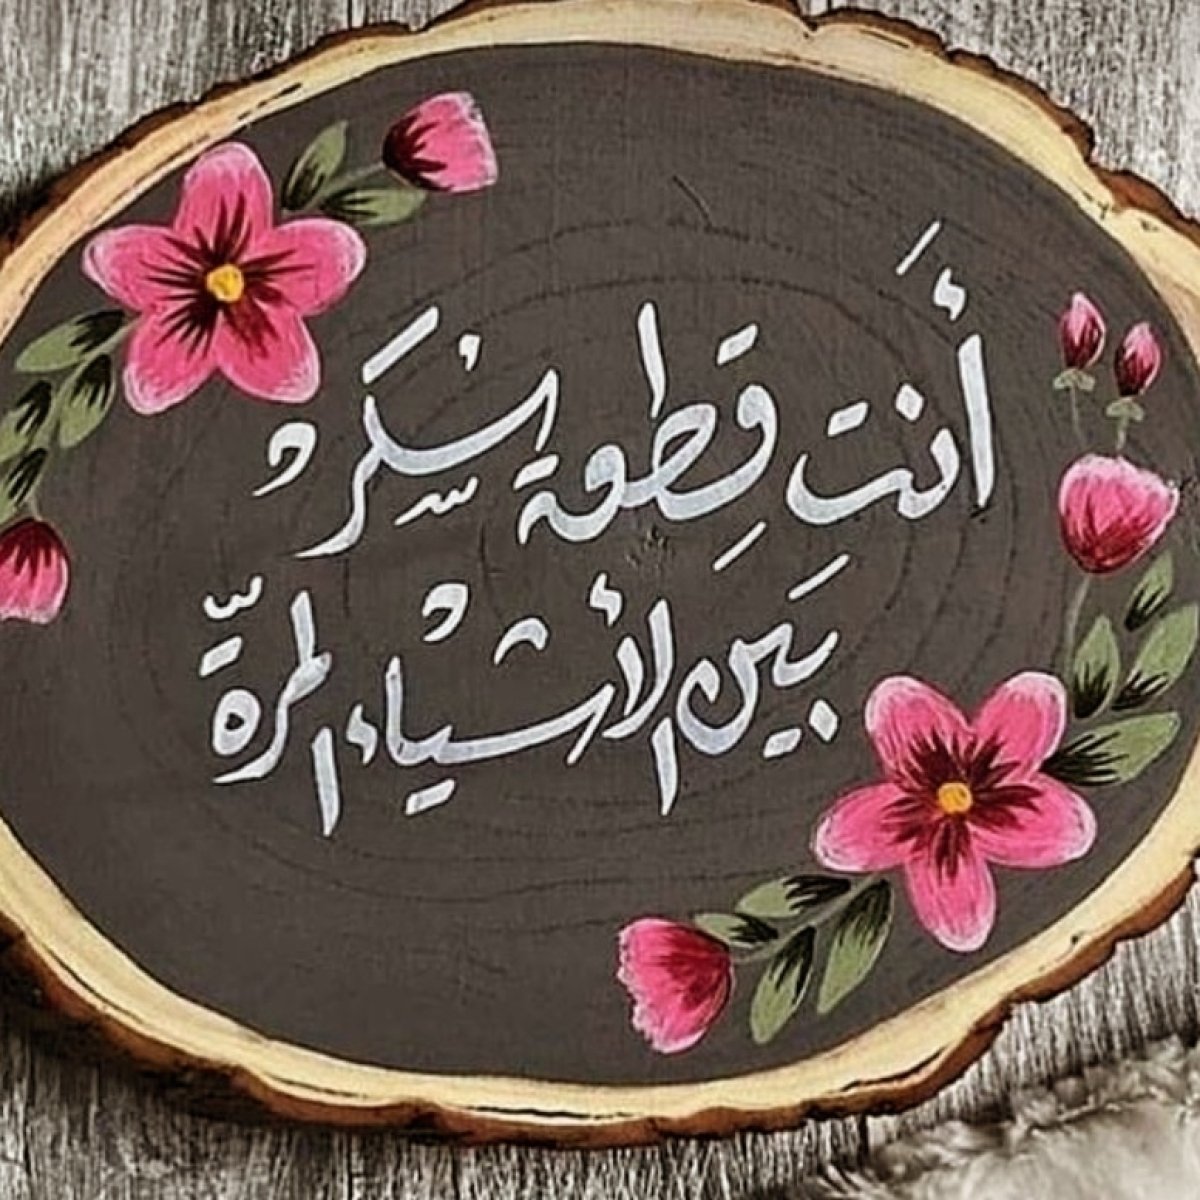 أَنت قِطعة سُكر
بَين الأشياء المرّة